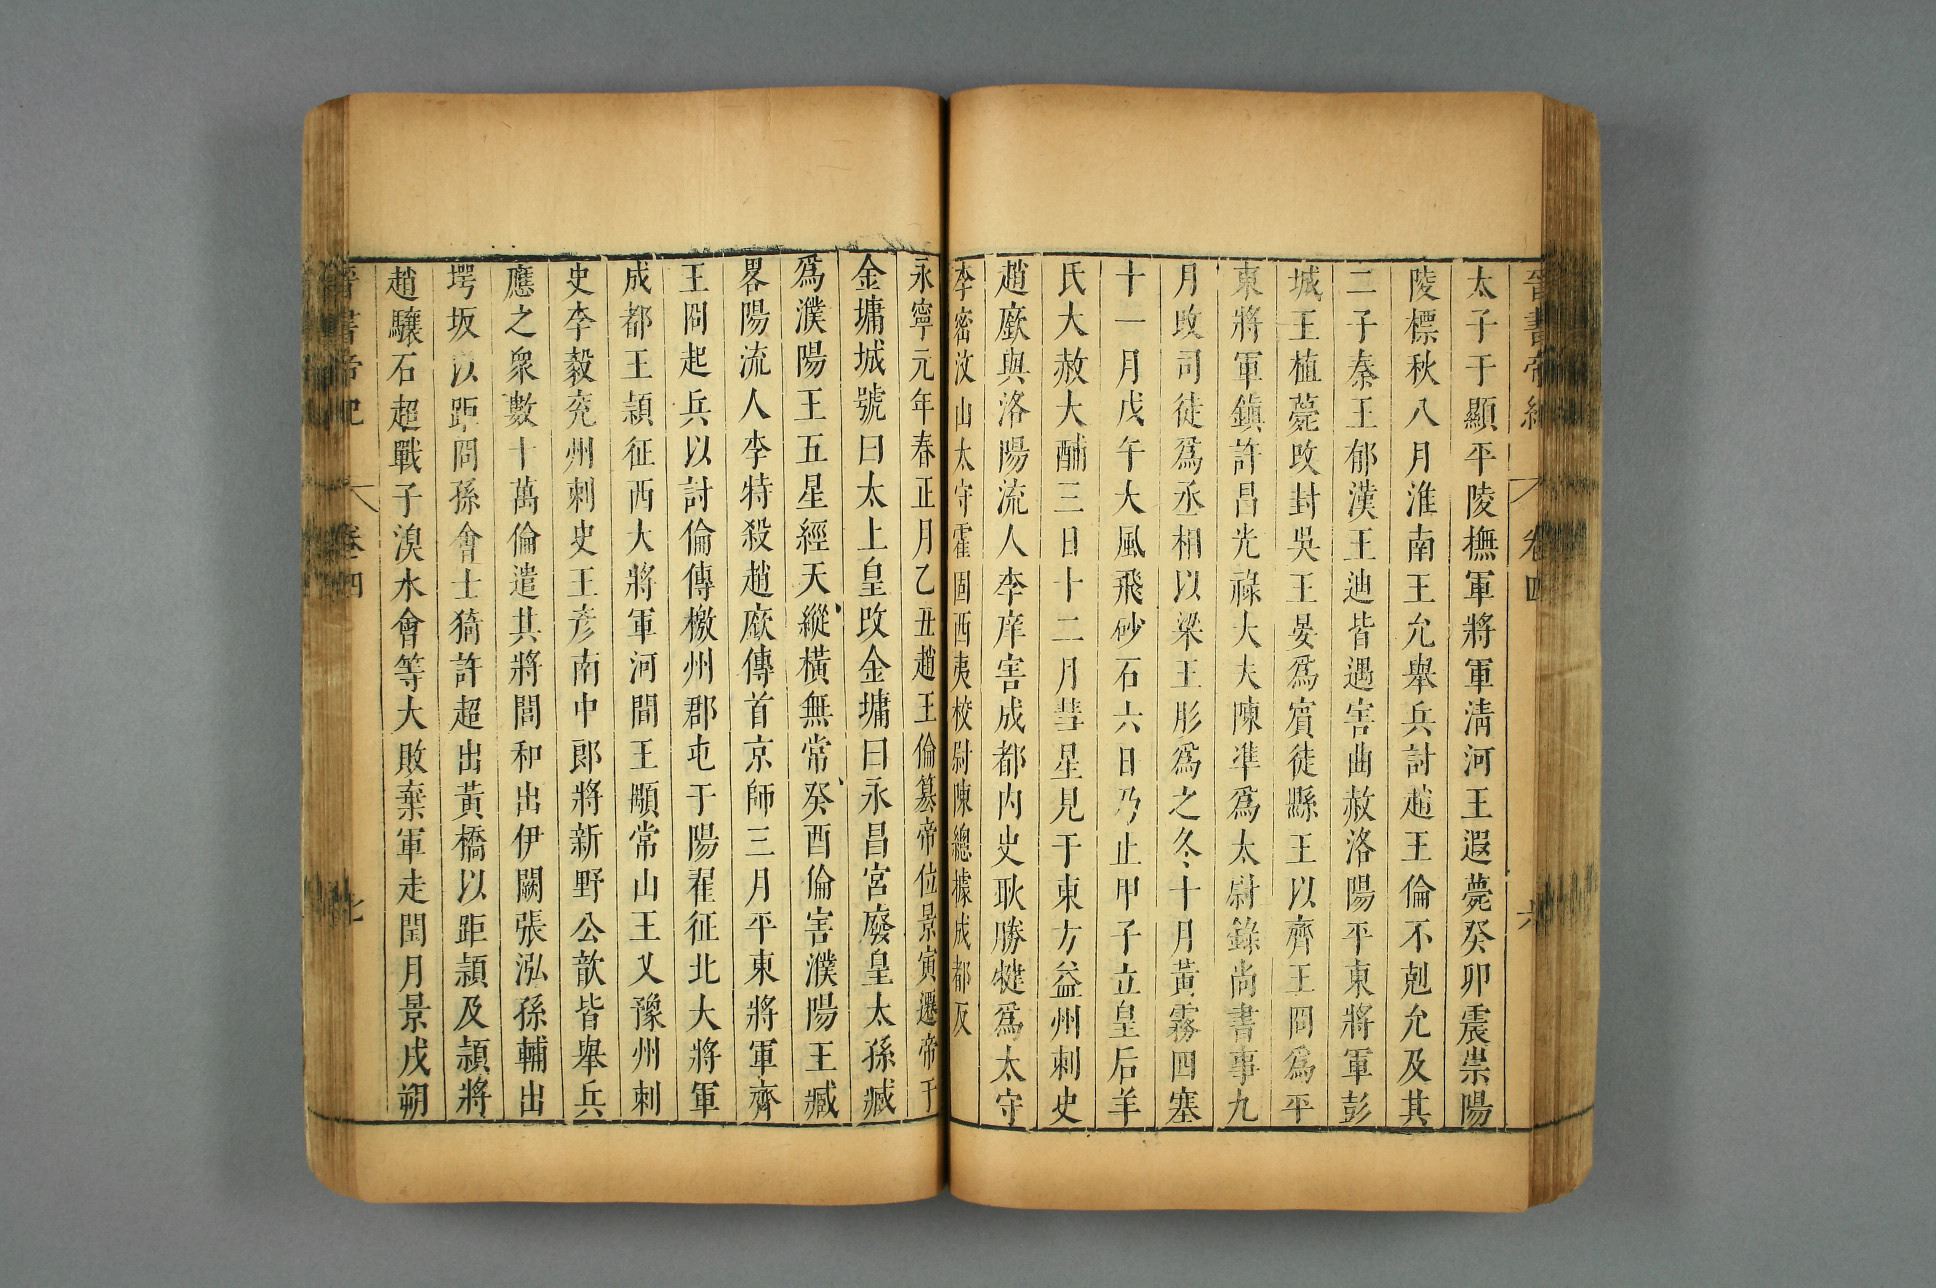 晉書帝紀 卷四 六
太子于顯平陵撫軍將軍淸河王遐薨癸卯震崇陽
陵標秋八月淮南王允舉兵討趙王倫不剋允及其
二子秦王郁漢王迪皆遇害曲赦洛陽平東將軍彭
城王植薨改封吳王晏爲賓徒縣王以齊王冏爲平
東將軍鎭許昌光祿大夫陳準爲太尉錄尚書事九
月改司徒爲丞相以梁王肜爲之冬十月黃霧四塞
十一月戊午大風飛砂石六日乃止甲子立皇后羊
氏大赦大酺三日十二月彗星見于東方益州刺史
趙廞與洛陽流人李庠害成都內史耿勝犍爲太守
李密汶山太守霍固西夷校尉陳總據成都反
永寧元年春正月乙丑趙王倫簒帝位景寅遷帝于
金墉城號曰太上皇改金墉曰永昌宮廢皇太孫臧
爲濮陽王五星經天縱橫無常癸酉倫害濮陽王臧
畧陽流人李特殺趙廞傳首京師三月平東將軍齊
王冏起兵以討倫傳檄州郡屯于陽翟征北大將軍
成都王潁征西大將軍河間王顒常山王乂豫州刺
史李毅兖州刺史王彥南中郎將新野公歆皆舉兵
應之衆數十萬倫遣其將閭和出伊闕張泓孫輔出
堮坂以距冏孫會士猗許超出黃橋以距潁及潁將
趙驤石超戰于溴水會等大敗棄軍走閏月景戌朔
晉書帝紀 卷四 七